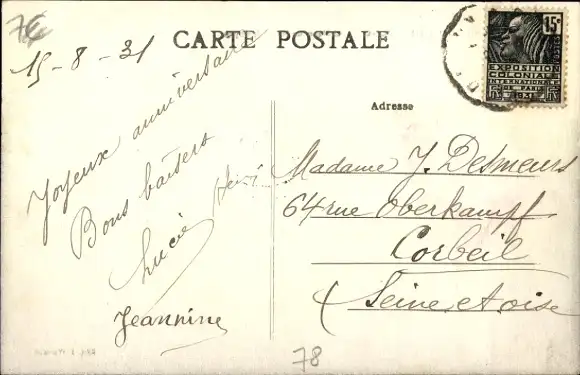 7€
CARTE POSTALE
15-8-31
15c
POSTES
EXPOSITION
COLONIALE
INTERNATIONALE
DE PARIS
1931
Adresse
Joyeux anniversaire
Bons baisers
Lucie Henri
Jeannine
Madame J. Desmeurs
64 rue Oberkampf
Corbeil
Seine et oise
78